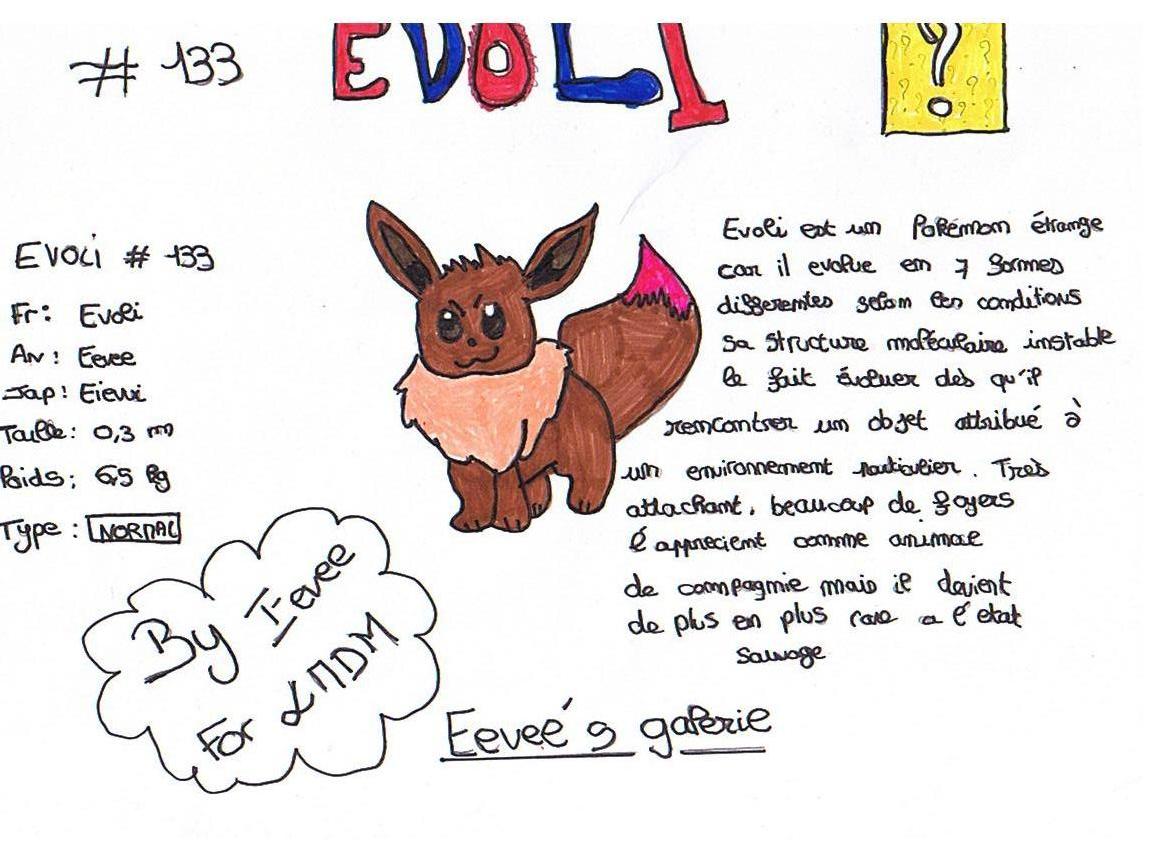 # 133
EVOLI
?
EVOLI # 133
Fr: Evoli
An: Eevee
Jap: Eievui
Taille: 0,3 m
Poids: 6,5 kg
Type: NORMAL
Evoli est un Pokémon étrange
car il evolue en 7 formes
differentes selon les conditions
sa structure moléculaire instable
le fait évoluer dès qu'il
rencontrer un objet attribué à
un environnement particulier. Très
attachant, beaucoup de foyers
l'apprecient comme animal
de compagnie mais il devient
de plus en plus rare a l'etat
sauvage
By Eevee
For LMDM
Eevee's galerie